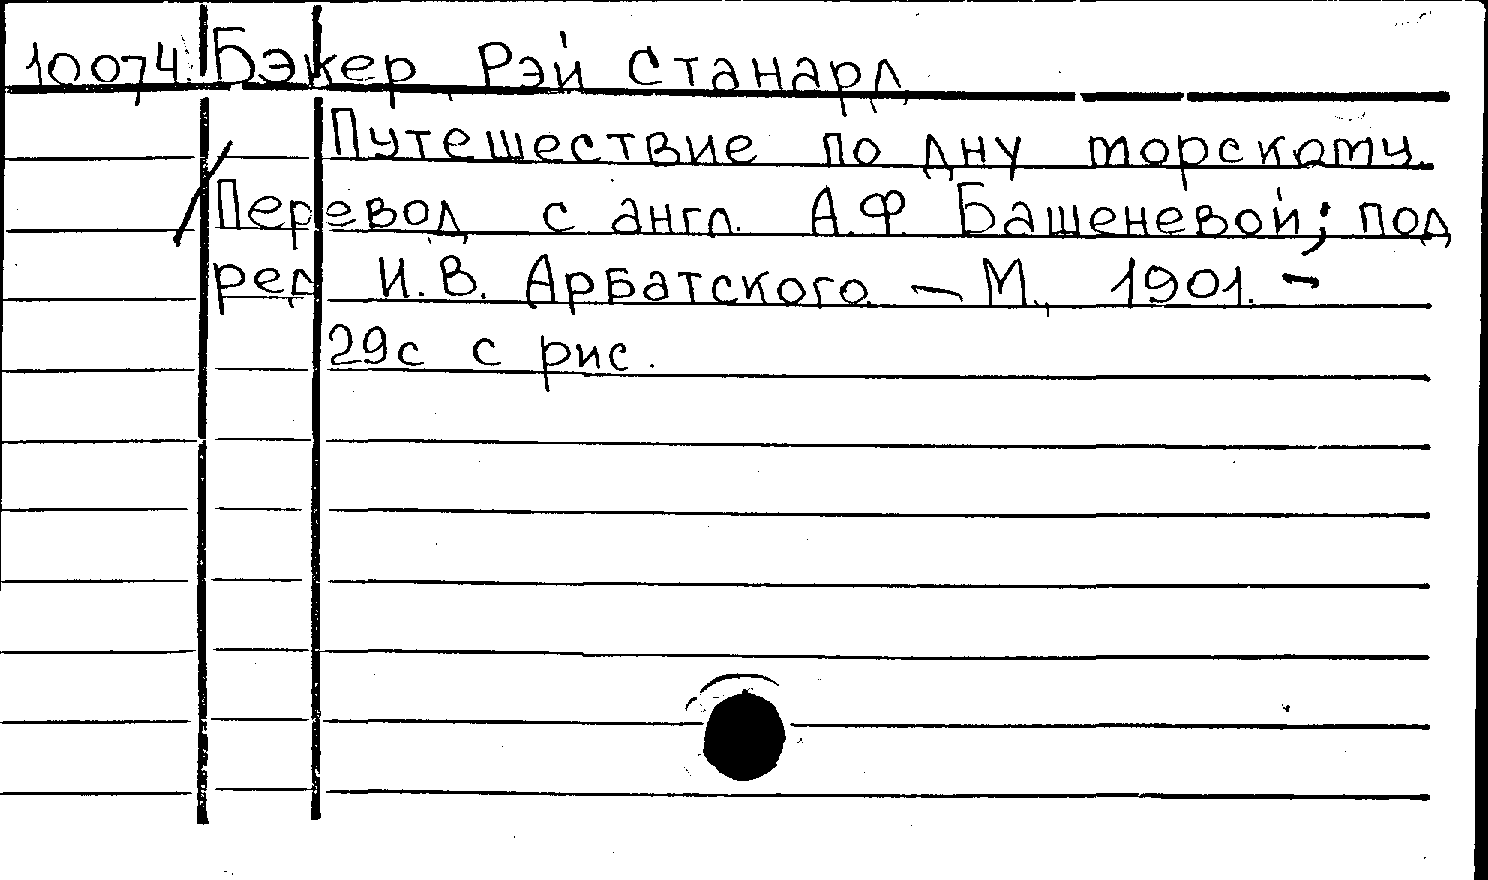 10074. Бэкер Рэй Станард
Путешествие по дну морскому.
/Перевод с англ. А.Ф. Башеневой; под
ред И.В. Арбатского. — М., 1901. —
29с с рис.